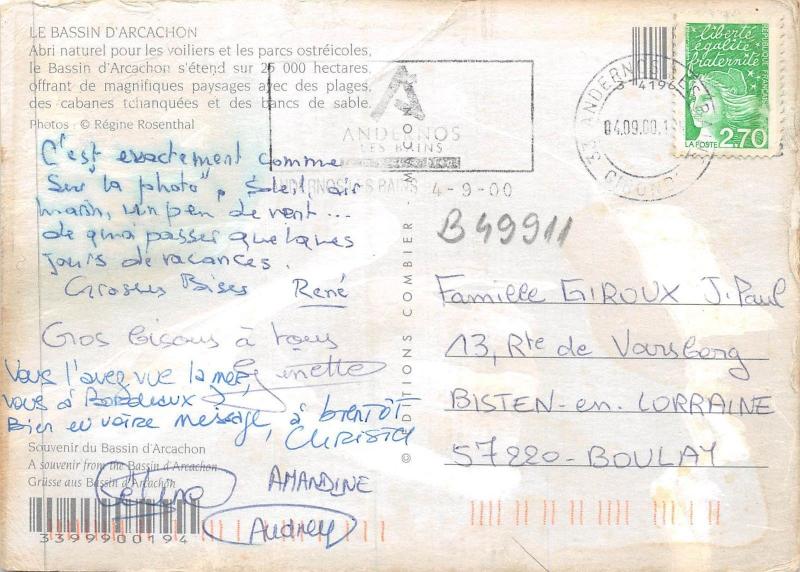 LE BASSIN D'ARCACHON
Abri naturel pour les voiliers et les parcs ostréicoles,
le Bassin d'Arcachon s'étend sur 25 000 hectares,
offrant de magnifiques paysages avec des plages,
des cabanes tchanquées et des bancs de sable.
Photos : © Régine Rosenthal
C'est exactement comme
"Sur la photo", Soleil, air
marin, un peu de vent...
de quoi passer quelques
jours de vacances.
Grosses Bises René
Gros bisous à tous
Ginette
Vous l'avez vue la mer,
vous à BORDEAUX
Bien eu votre message, à bientôt
CHRISTEL
Souvenir du Bassin d'Arcachon
A souvenir from the Bassin d'Arcachon
Grüsse aus Bassin d'Arcachon
AMANDINE
Audrey
3399900194
ANDERNOS
LES BAINS
ANDERNOS LES BAINS 4-9-00
© EDITIONS COMBIER - MACON
33 ANDERNOS LES BAINS
04.09.00
GIRONDE
liberté
égalité
fraternité
REPUBLIQUE FRANÇAISE
LA POSTE 2,70
B49911
Famille GIROUX J.Paul
13, Rte de Varsberg
BISTEN-en-LORRAINE
57220-BOULAY